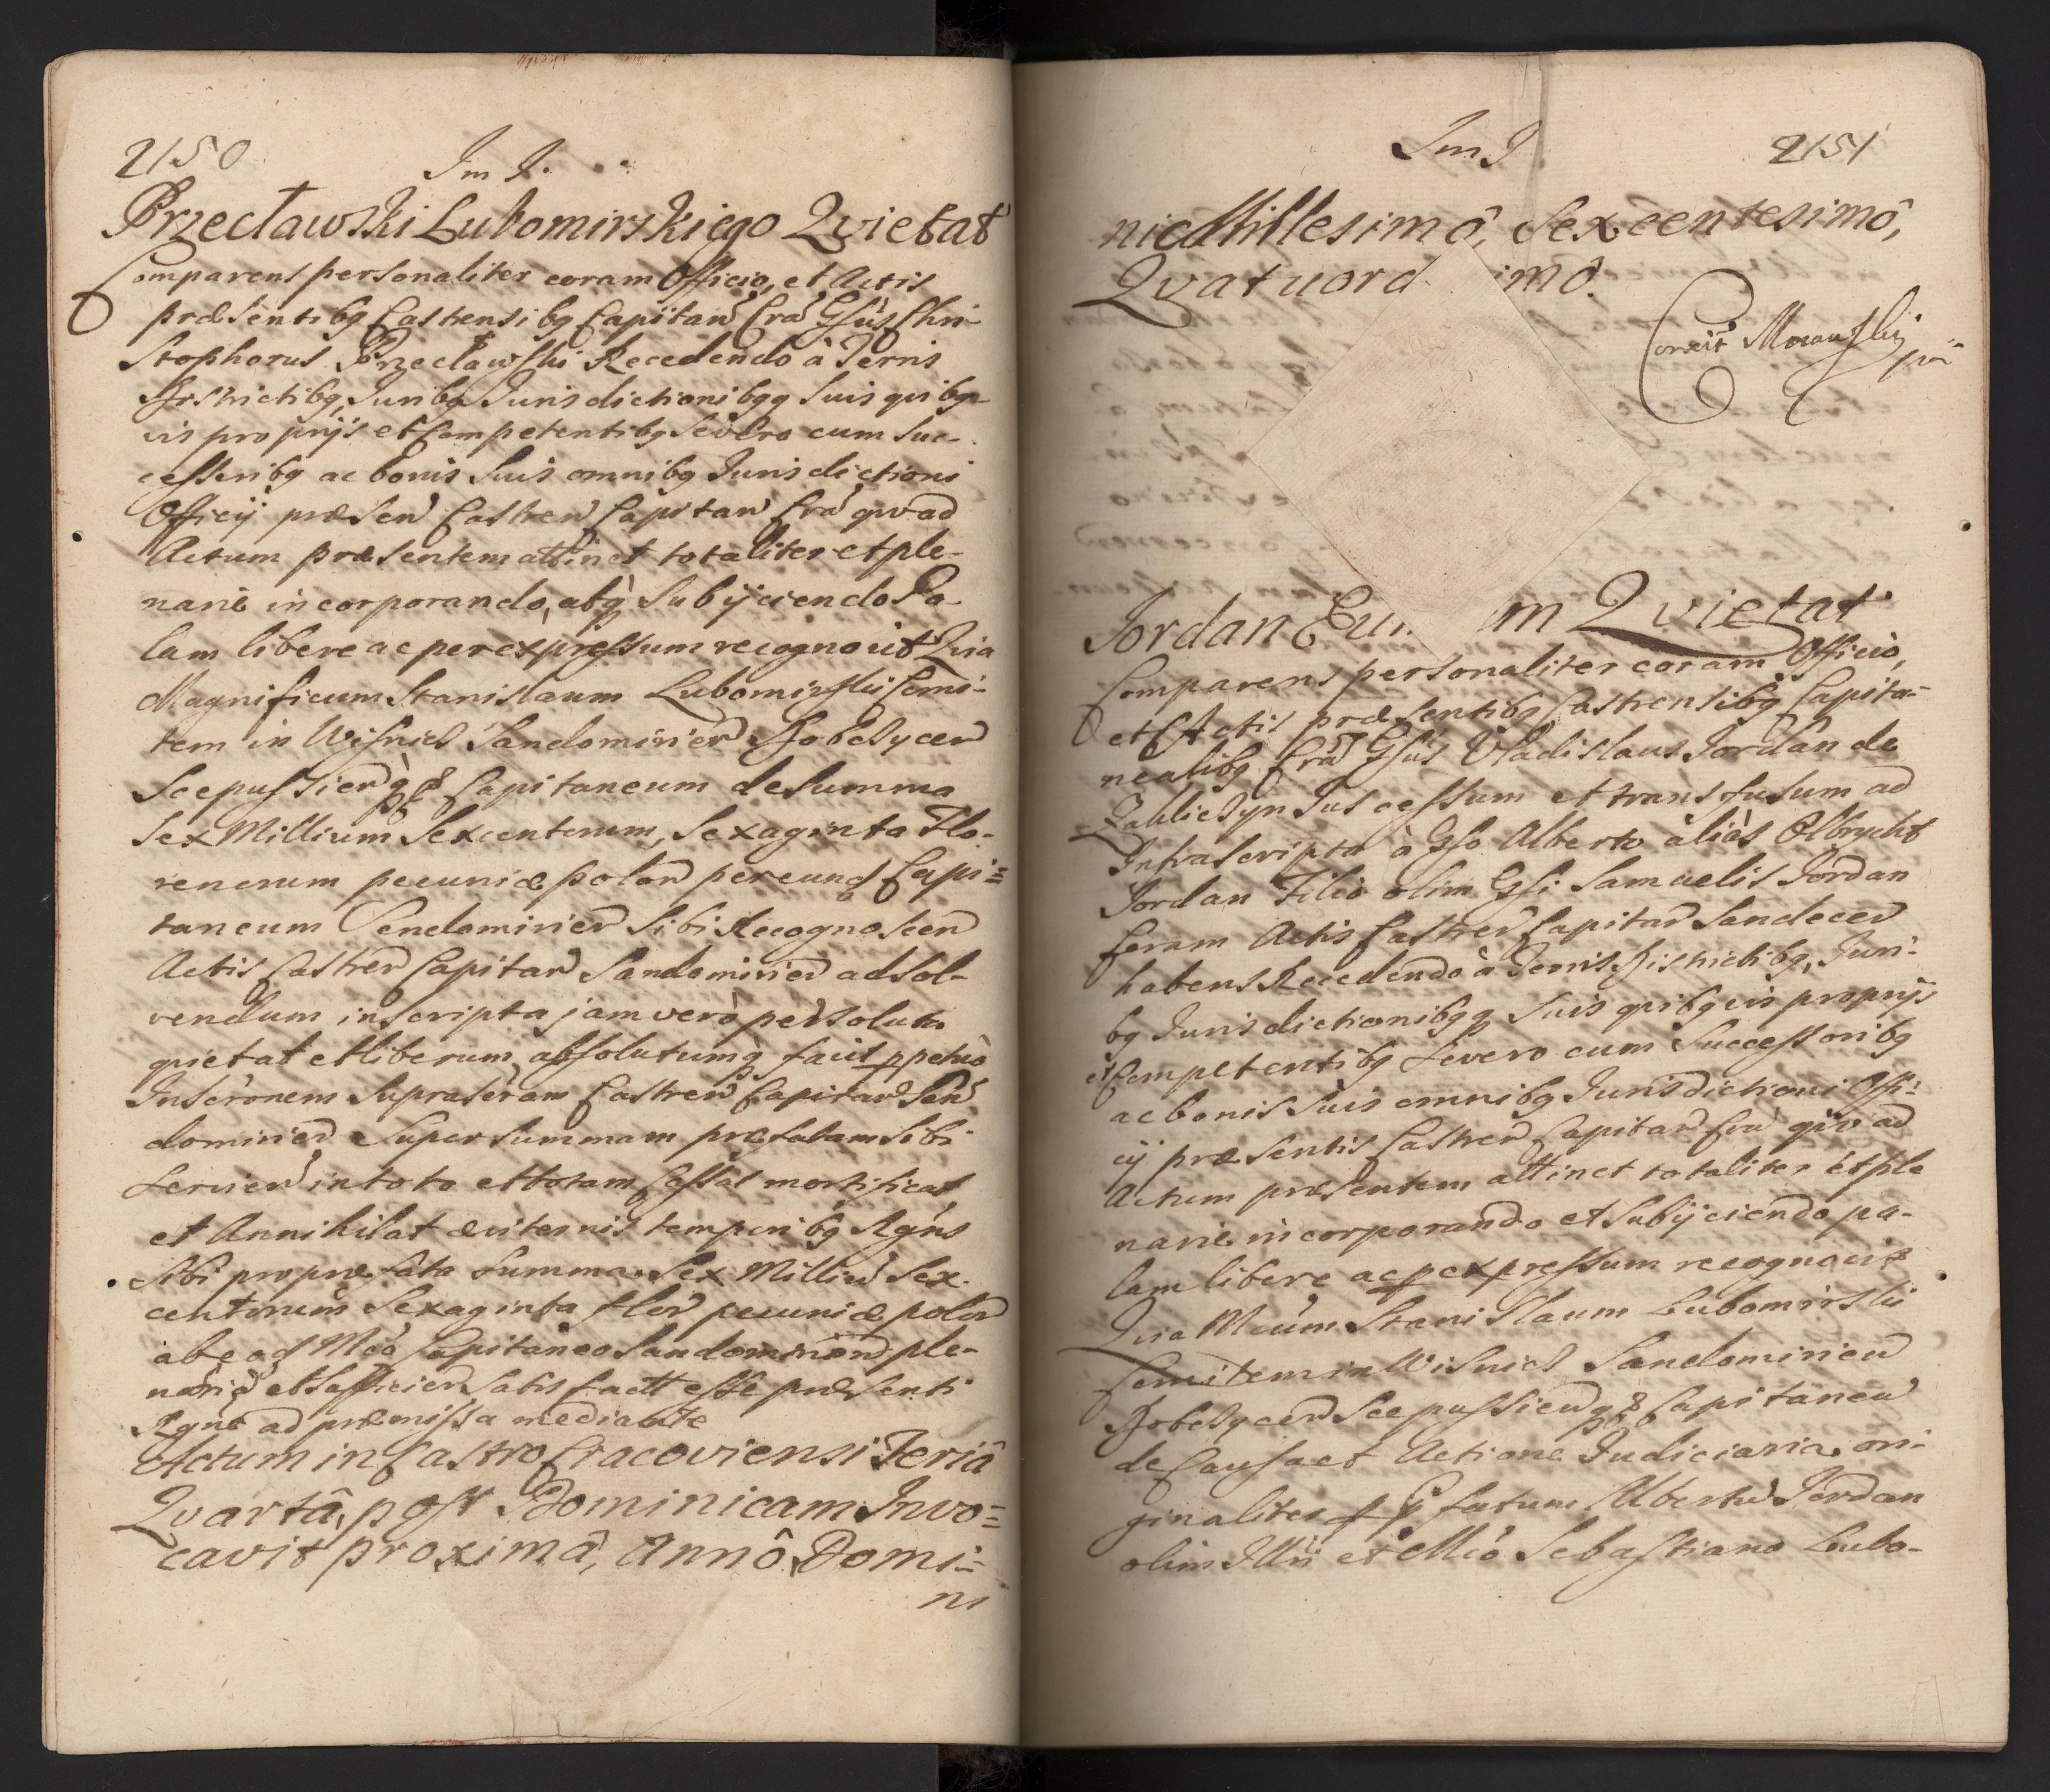 2150
Im J.
Przecławski Lubomirskiego Qvietat
Comparens personaliter coram Officio, et Actis
præsentibq Castrensibq Capitan Cra Gsus Chri-
stophorus Przecławski Recedendo à Terris
Districtibq, Juribq Jurisdictionibqq suis qvibq-
vis proprijs et Competentibq se vero cum suc-
cessoribq ac bonis suis omnibq Jurisdictioni
Officij præsen Castren Capitan Cra qvoad
Actum præsentem attinet totaliter et ple-
narie incorporando, atq subijciendo Pa-
lam libere ac per expressum recognovit Qvia
Magnificum Stanislaum Lubomirskij Comi-
tem in Wisnicz Sandomirien Dobczycen
Scepussien q Capitaneum de summa
sex Millium Sexcentorum, Sexaginta Flo-
renorum pecuniæ polon per eund Capi=
taneum Sendomirien sibi Recognoscen
Actis Castren Capitan Sandomirien ad sol-
vendum inscripta jam vero persoluta
qvietat et liberum, absolutumq facit ppetuò
Inscronem suprascram Castren Capitan San
domirien super summam præfatam sibi
servien in toto et totam Cassat mortificat
et Annihilat æviternis temporibq Rgns
sibi pro præfata summa Sex Milliu Sex-
centorum Sexaginta flor pecuniæ polon
ab eod Mco Capitaneo Sandomirien ple-
narie et sufficien satisfactt esse præsenti
Rgne ad præmissa mediante
Actum in Castro Cracoviensi Feriâ
Qvartâ, post Dominicam Invo=
cavit proximâ, Annô Domi=
ni
Im J
2151
ni Millesimô, Sexcentesimô,
Qvatuord imô.
Correxit Morawskij
pp
Jordan Eu m Qvietat
Comparens personaliter coram Officio,
et Actis præsentibq Castrensibq Capita-
nealibq Cra Gsus Vladislaus Jordan de
Zakliczyn Jus cessum et transfusum ad
Infrascripta à Gso Alberto aliàs Olbrycht
Jordan Filio olim Gsi Samuelis Jordan
Coram Actis Castren Capitan Sandecen
habens Recedendo à Terris Districtibq, Juri-
bq Jurisdictionibqq suis qvibqvis proprijs
et Competentibq se vero cum Successoribq
ac bonis suis omnibq Jurisdictioni Offi-
cij præsentis Castren Capitan Cra qvoad
Actum præsentem attinet totaliter et ple
narie incorporando et subijciendo pa-
lam libere ac p expressum recognovit
Qvia Mcum Stanislaum Lubomirskij
Comitem in Wisnicz Sandomirien
Dobczycen Scepussien q Capitaneu
de Causa et Actione Judiciaria ori-
ginaliter p fatum Albertu Jordan
olim Illri et Mco Sebastiano Lubo-